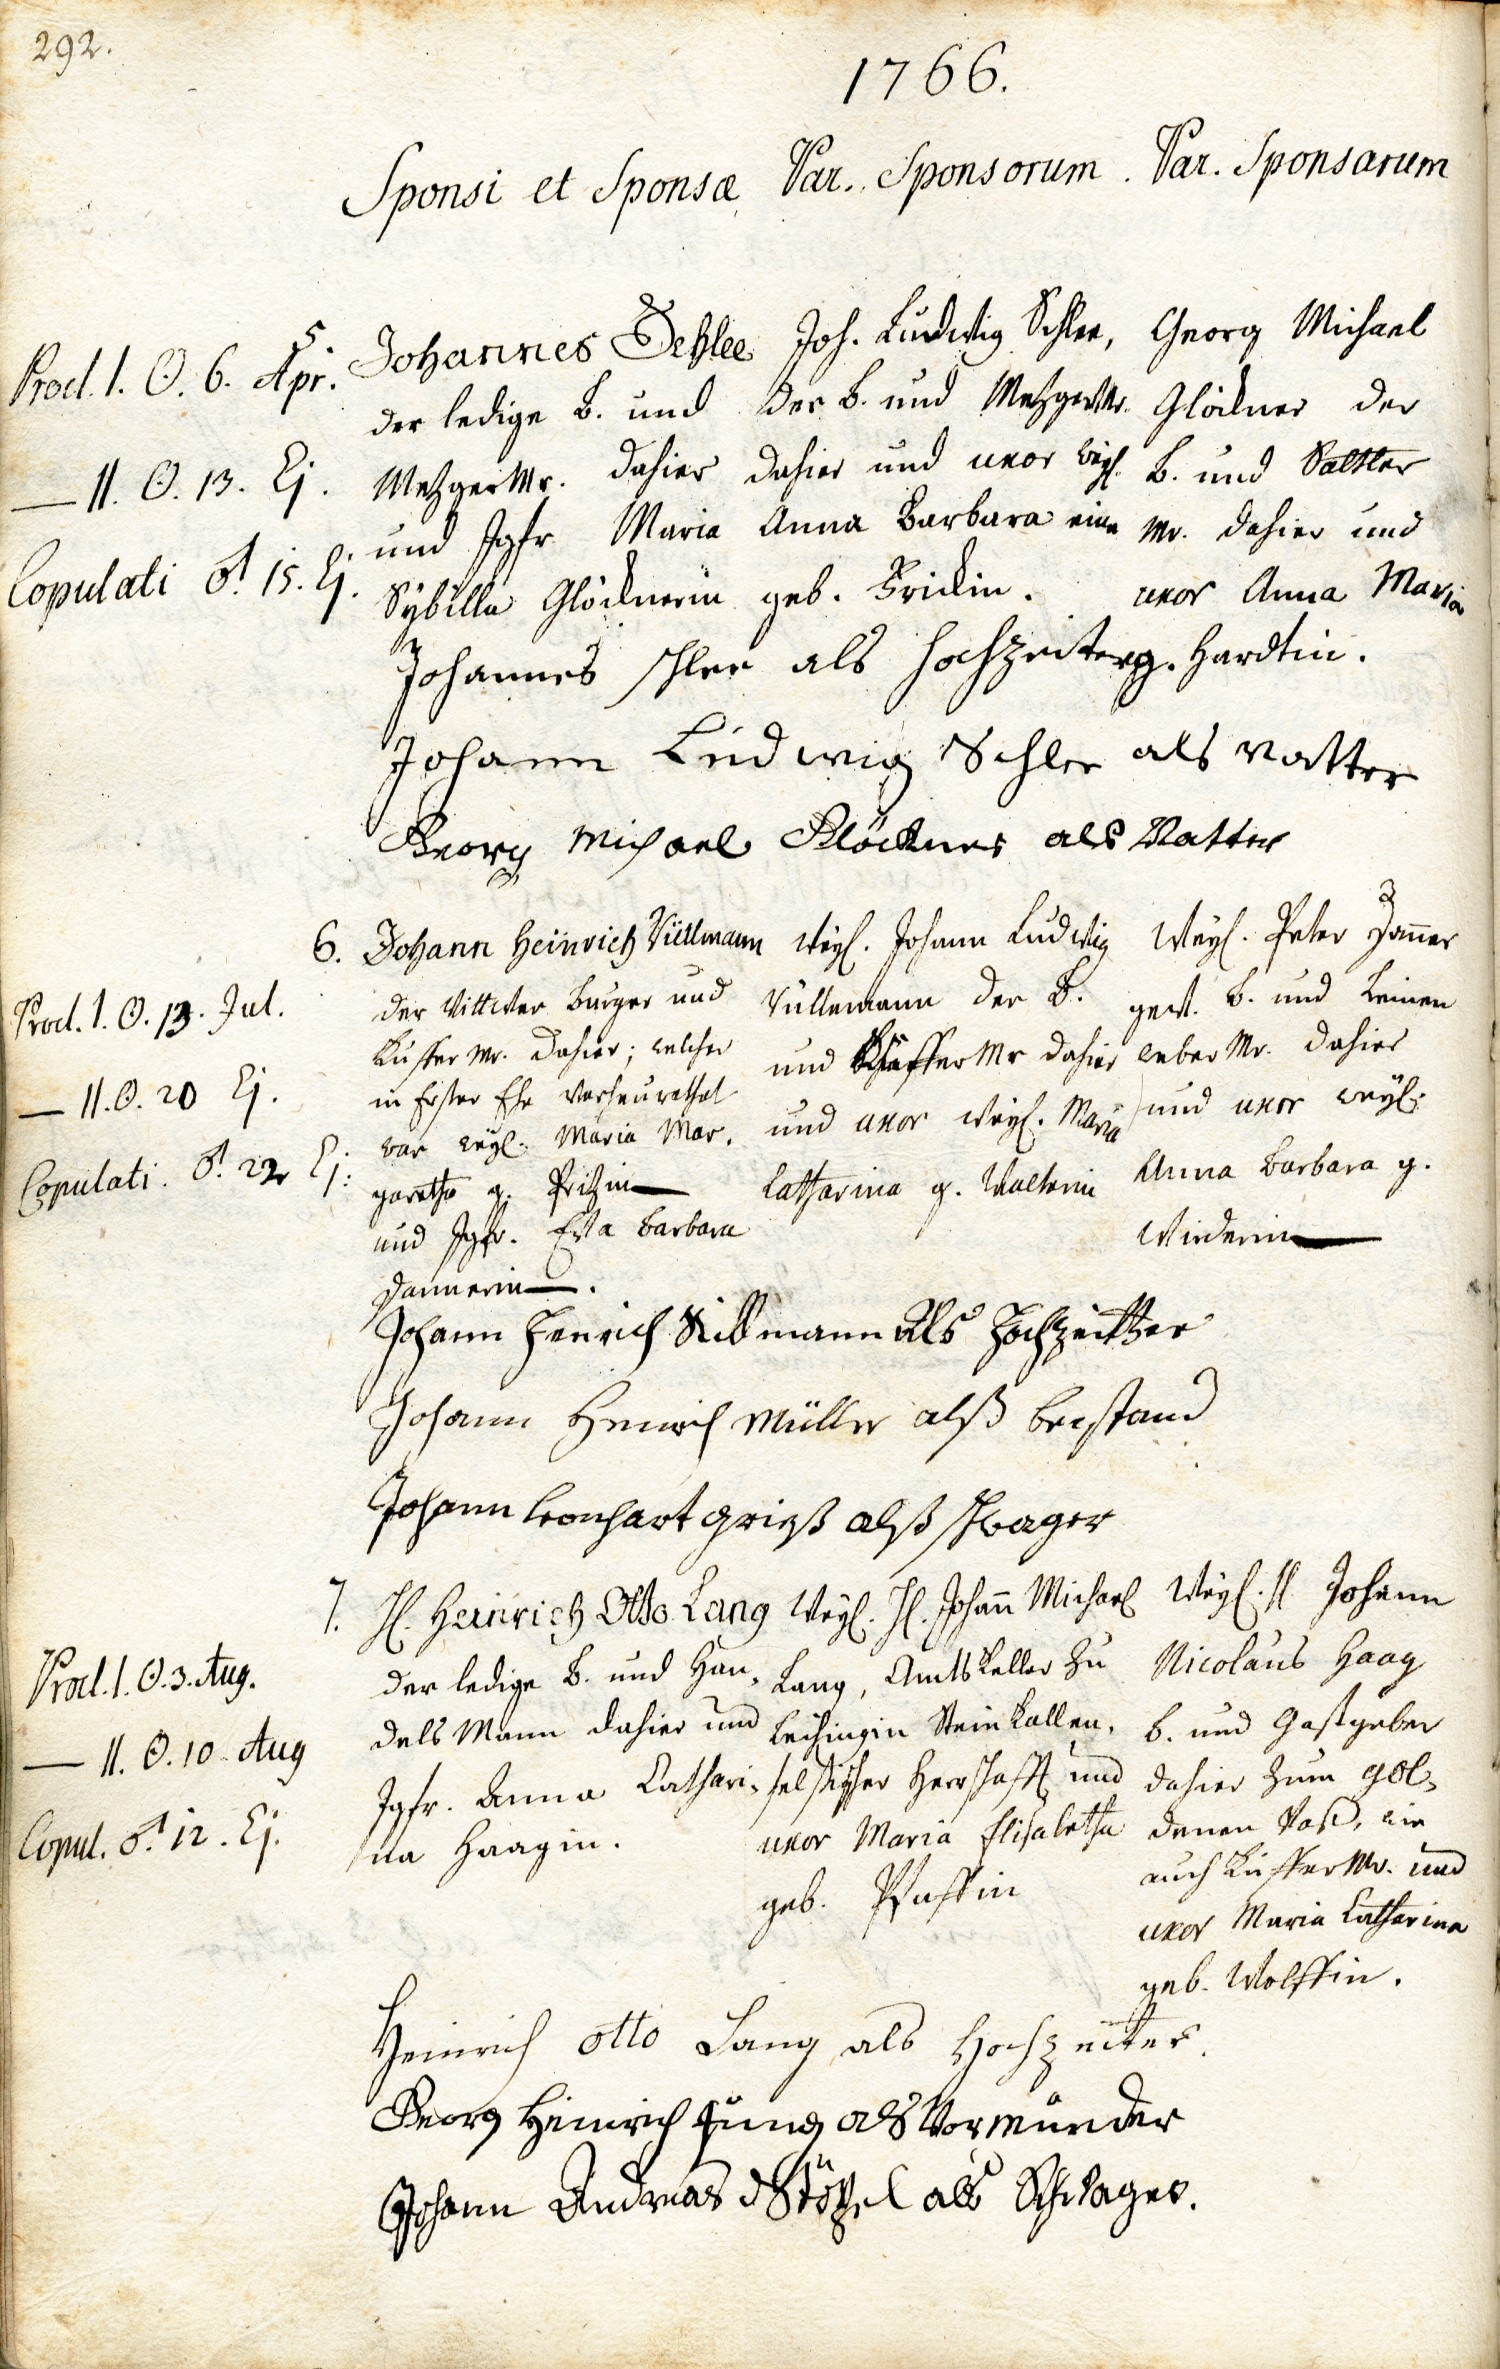 292.
1766.
Sponsi et Sponsæ Par. Sponsorum. Par. Sponsarum
5.
Procl. I. ☉. 6. Apr.
— II. ☉. 13. Ej.
Copulati ♂ 15. Ej.
Johannes Schlee
der ledige B. und
Metzger Mr. dahier
und Jgfr Maria
Sybilla Glöcknerin
Joh. Ludwig Schlee,
der B. und Metzger Mr.
dahier und uxor weyl.
Anna Barbara eine
geb. Frickin.
Georg Michael
Glöckner der
B. und Sattler
Mr. dahier und
uxor Anna Maria
g. Hardtin.
Johannes schlee als hochzeiter
Johann Ludwig Schlee als vatter
Georg Michael Glöckner als Vatter
6.
Procl. I. ☉. 13. Jul.
— II. ☉. 20 Ej.
Copulati. ♂ 22 Ej:
Johann Heinrich Vüllmann
der Wittwer Burger und
Kuffer Mr. dahier; welcher
in Erster Ehe verheurathet
war weyl. Maria Mar,
garetha g. Pritzin —
und Jgfr. Eva Barbara
Dannerin —.
Weyl. Johann Ludwig
Vüllemann der B.
und Kuffer Mr dahier
und uxor weyl. Maria
Catharina g. Walterin
Weyl. Peter Danner
gew. B. und Leinen
weber Mr. dahier
und uxor weyl.
Anna Barbara g.
Wiederin —
Johann Henrich Villmann als Hochzeitter
Johann Henrich Müller alß beystand
Johann Leonhart Grieß alß schwager
7.
Procl. I. ☉. 3. Aug.
— II. ☉. 10. Aug
Copul. ♂ 12. Ej.
H. Heinrich Otto Lang
der ledige B. und Han,
dels Mann dahier und
Jgfr. Anna Cathari,
na Haagin.
Weyl. H. Johann Michael
Lang, Amts Keller zu
Steinkallen,
felsischer Herrschafft und
uxor Maria Elisabetha
geb. Pfaffin
Weyl. H Johann
Nicolaus Haag
B. und Gastgeber
dahier zum gol,
denen Faß, wie
auch Kuffer Mr. und
uxor Maria Catharina
geb. Wolffin.
Heinrich Otto Lang als Hochzeiter.
Georg Heinrich Jung als Vormunder
Johann Andreas Stötzel als Schwager.